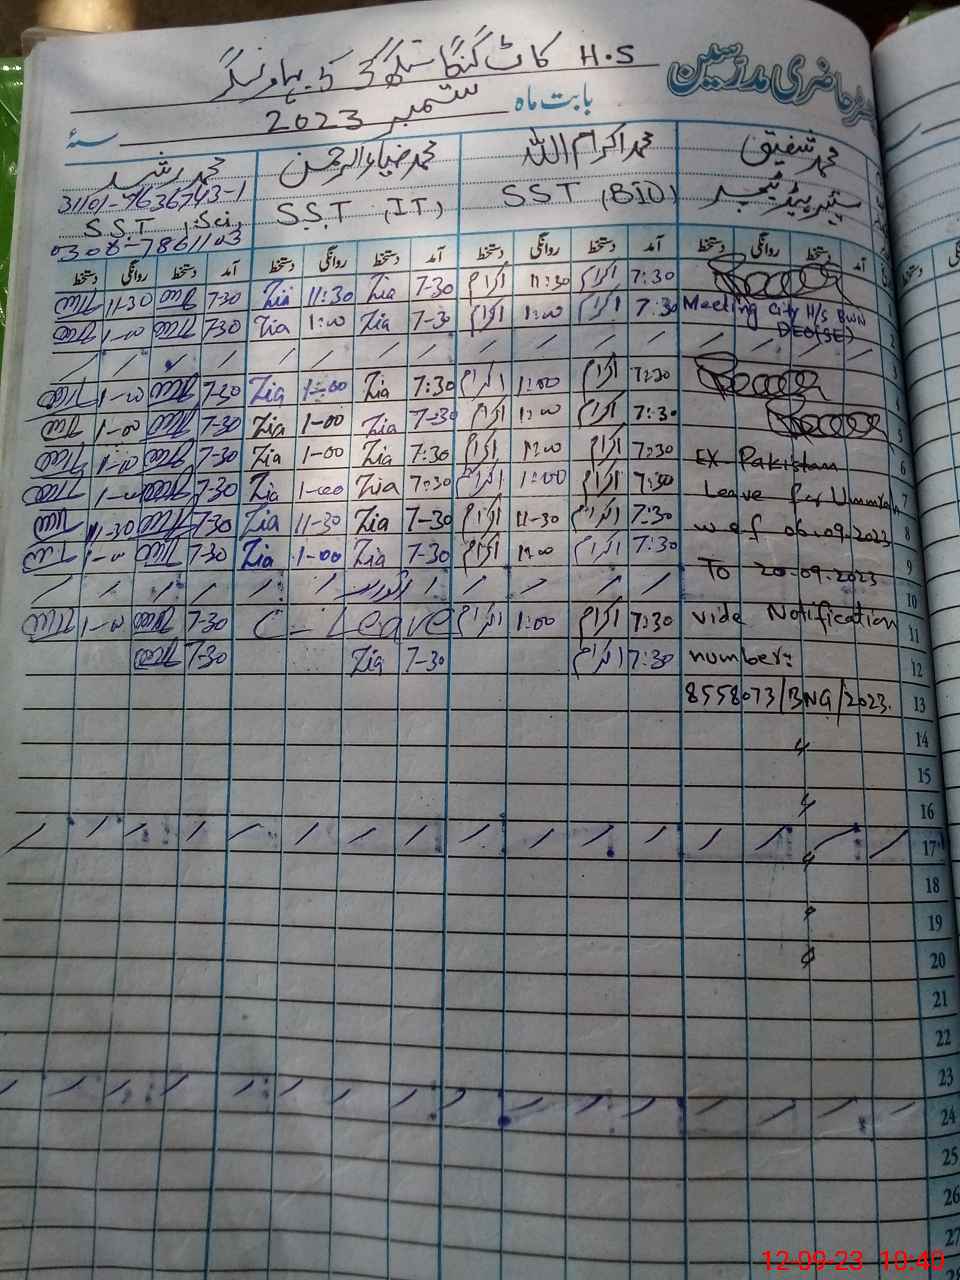 رجسٹر حاضری مدرسین
H.S کاٹ گنگا سنگھ ضلع بہاولنگر
بابت ماہ ستمبر 2023 سنہٴ
محمد شفیق محمد اکرام اللہ محمد ضیاء الرحمن محمد رشید
31101-7636743-1
سینئر ہیڈ ٹیچر SST (BIO) S.S.T (IT) S.S.T (Sci)
0308-7861103
آمد روانگی دستخط آمد دستخط روانگی دستخط آمد دستخط روانگی دستخط آمد دستخط روانگی دستخط
1 7:30 اکرام 11:30 اکرام 7-30 Zia 11:30 Zia 7-30 11-30
2 Meeting City H/S BWN DEO(SE) 7:30 اکرام 1:00 اکرام 7-30 Zia 1:00 Zia 7-30 1-00
3
4 7:30 اکرام 1:00 اکرام 7:30 Zia 1:00 Zia 7-30 1-00
5 7:30 اکرام 1:00 اکرام 7-30 Zia 1-00 Zia 7-30 1-00
6 EX Pakistan 7:30 اکرام 1:00 اکرام 7:30 Zia 1-00 Zia 7-30 1-00
7 Leave for Ummrah 7:30 اکرام 1:00 اکرام 7:30 Zia 1-00 Zia 7-30 1-00
8 w.e.f 06.09.2023 7:30 اکرام 11-30 اکرام 7-30 Zia 11-30 Zia 7-30 11-30
9 To 20-09-2023 7:30 اکرام 1:00 اکرام 7-30 Zia 1-00 Zia 7-30 1-00
10 اتوار
11 vide Notification 7:30 اکرام 1:00 اکرام C-Leave 7-30 1-00
12 number: 7:30 اکرام 7-30 Zia 7-30
13 8558073/BNG/2023.
14
15
16
17
18
19
20
21
22
23
24
25
26
27
12-09-23 10:40